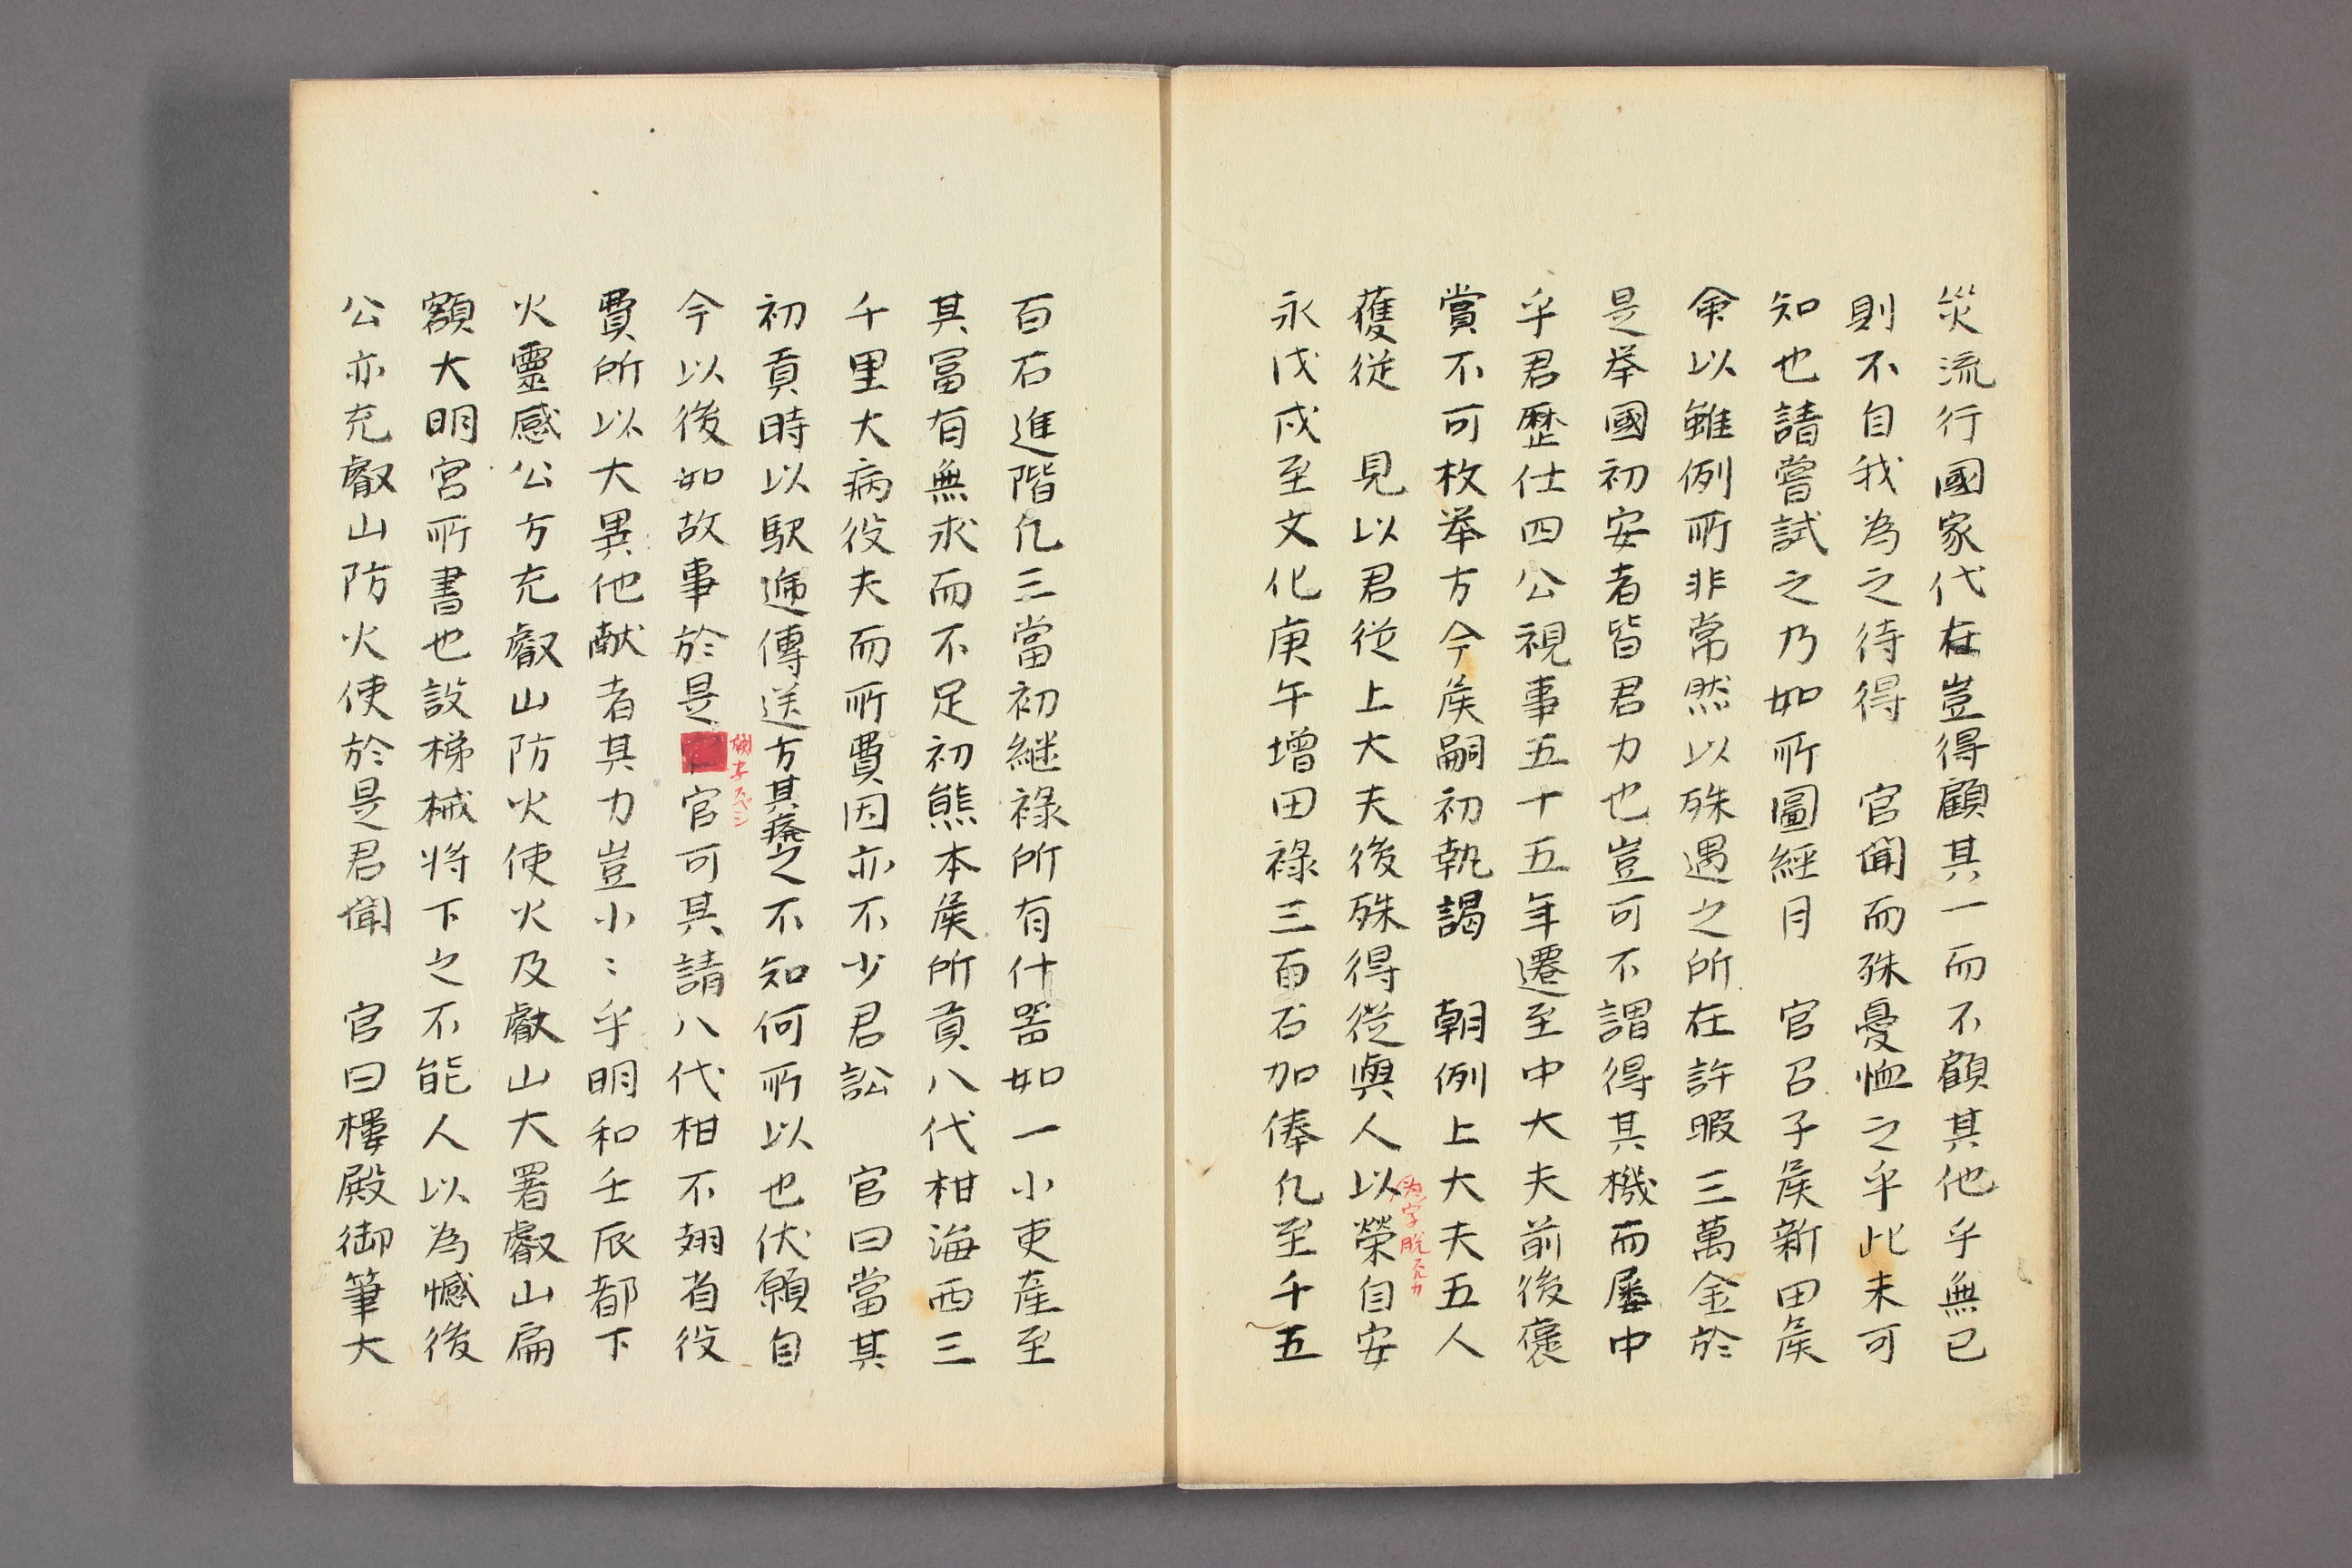 災流行國家代在豈得顧其一而不顧其他乎無已
則不自我為之待得　官聞而殊憂恤之乎此未可
知也請嘗試之乃如所圖經月　官召子侯新田侯
命以雖例所非常然以殊遇之所在許暇三萬金於
是挙國初安者皆君力也豈可不謂得其機而屢中
乎君歷仕四公視事五十五年遷至中大夫前後褒
賞不可枚挙方今侯嗣初執謁　朝例上大夫五人
獲従　見以君従上大夫後殊得従與人以榮自安
為字脱スルカ
永戊戌至文化庚午增田祿三百石加俸凡至千五
百石進階凡三當初継祿所有什器如一小吏産至
其冨有無求而不足初熊本侯所貢八代柑海西三
千里大病役夫而所費因亦不少君訟　官曰當其
初貢時以駅逓傳送方其癈之不知何所以也伏願自
今以後如故事於是　官可其請八代柑不翅省役
闕字スベシ
費所以大異他献者其力豈小〻乎明和壬辰都下
火靈感公方充叡山防火使火及叡山大署叡山扁
額大明宮所書也設梯械将下之不能人以為憾後
公亦充叡山防火使於是君聞　官曰樓殿御筆大